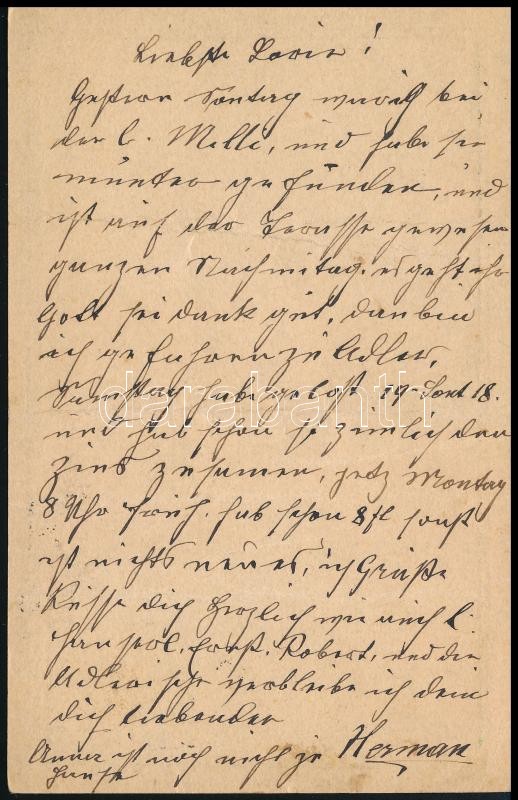 Liebste Lorie!
Gestern Sontag war ich bei
der l. Melli, und habe sie
munter gefunden, und
ist auf der Terasse gewesen
ganzen Nachmitag. es geht ihr
Gott sei dank gut, dan bin
ich gefahren zu Adler,
Samstag habe gelost 19- Sont 18.
und hab schon so zimlich den
Zins zusamen, jetz Montag
8 Uhr früh. hab schon 8 fl sonst
ist nichts neues, ich Grüße
Küsse dich Herzlich wie auch l.
Ernst. Robert, und die
verbleibe ich dein
dich liebender
Herman
Anna ist noch nicht zu
Hause
darabanth